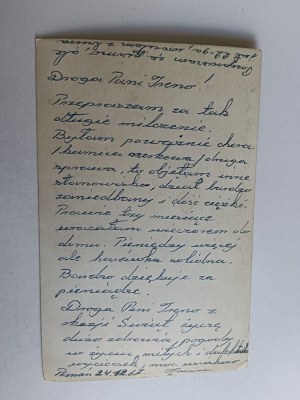 Droga Pani Ireno!
Przepraszam za tak
długie milczenie.
Byłam poważnie chora
/kamica nerkowa/ druga
sprawa, to objęłam inne
stanowisko, dział bardzo
zaniedbany i dość ciężki.
Prawie trzy miesiące
wracałam wieczorem do
domu. Pieniędzy więcej
ale harówka solidna.
Bardzo dziękuję za
pieniądze.
Droga Pani Ireno z
okazji Świąt, życzę
dużo zdrowia, pogody
w życiu, miłych i
wycieczek, moc
Poznań 24.12.